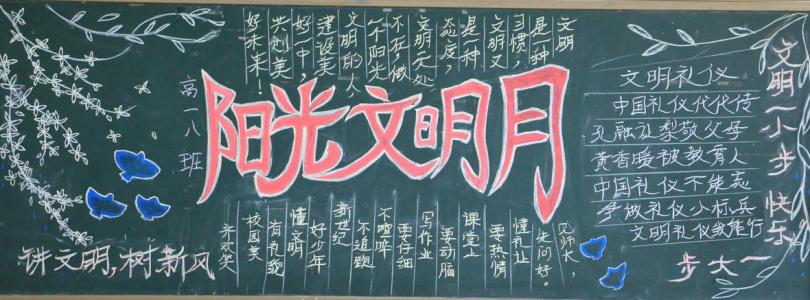 阳光文明月
高一八班
文明
是一种
习惯,
文明又
是一种
态度
文明无处
不在,做
个阳光
文明的人
建设美
好中,
共创美
好未来!
文明礼仪
中国礼仪代代传
孔融让梨敬父母
黄香暖被教育人
中国礼仪不能忘
争做礼仪小标兵
文明礼仪我能行
文明一小步 快乐
一大步
见师长,
先问好。
懂礼让
要热情
课堂上
要动脑
写作业
要仔细
不喧哗
不追跑
新世纪
好少年
懂文明
有礼貌
校园美
讲文明,树新风